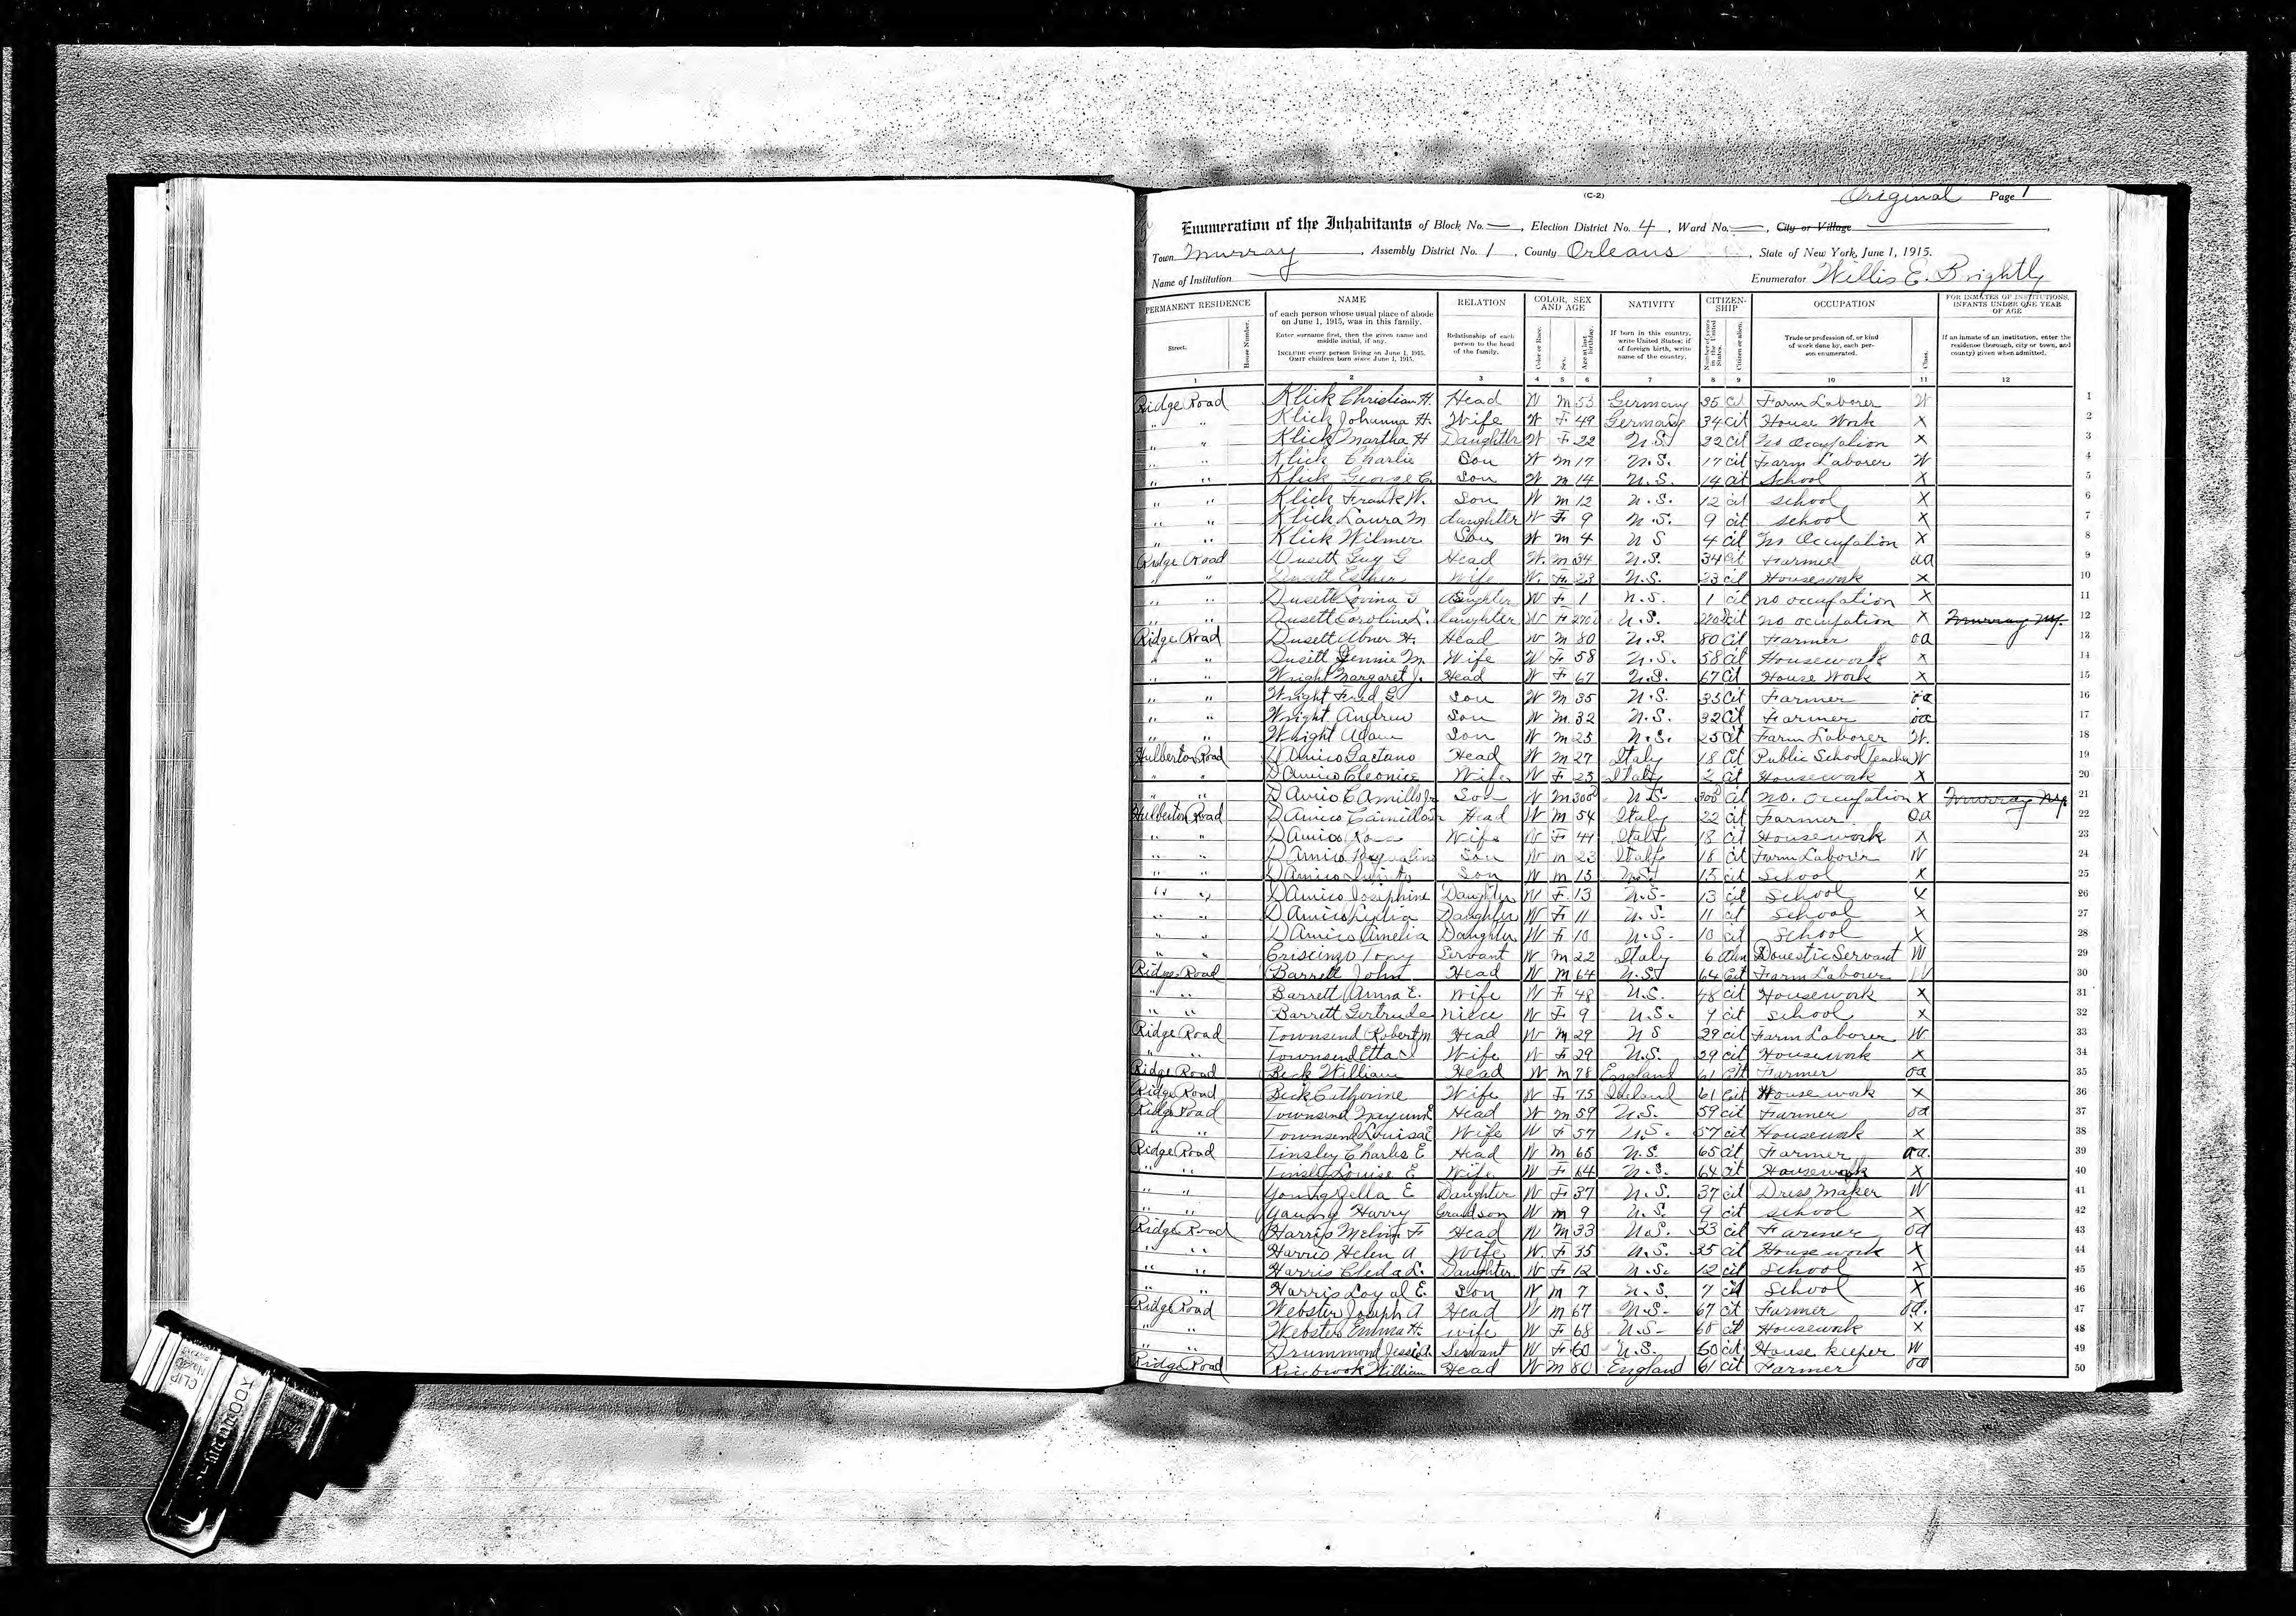 (C-2)
Original Page 1
Enumeration of the Inhabitants of Block No. —, Election District No. 4, Ward No. —, City or Village
Town Murray, Assembly District No. 1, County Orleans, State of New York, June 1, 1915.
Name of Institution Enumerator Willis E. Brightly
PERMANENT RESIDENCE NAME RELATION COLOR, SEX AND AGE NATIVITY CITIZENSHIP OCCUPATION FOR INMATES OF INSTITUTIONS, INFANTS UNDER ONE YEAR OF AGE
Street. House Number. of each person whose usual place of abode on June 1, 1915, was in this family. Enter surname first, then the given name and middle initial, if any. INCLUDE every person living on June 1, 1915. OMIT children born since June 1, 1915. Relationship of each person to the head of the family. Color or Race. Sex. Age at last birthday. If born in this country, write United States; if of foreign birth, write name of the country. Number of years in the United States. Citizen or alien. Trade or profession of, or kind of work done by, each person enumerated. Class. If an inmate of an institution, enter the residence (borough, city or town, and county) given when admitted.
1 2 3 4 5 6 7 8 9 10 11 12
Ridge Road Klick Christian H. Head W M 53 Germany 35 cit Farm Laborer W 1
" " Klick Johanna H. Wife W F 49 Germany 34 cit House Work X 2
" " Klick Martha H Daughter W F 22 U.S. 22 cit No Occupation X 3
" " Klick Charlie Son W M 17 U.S. 17 cit Farm Laborer W 4
" " Klick George C. Son W M 14 U.S. 14 cit School X 5
" " Klick Frank W. Son W M 12 U.S. 12 cit school X 6
" " Klick Laura M daughter W F 9 U.S. 9 cit school X 7
" " Klick Wilmer Son W M 4 U S 4 cit No Occupation X 8
Ridge Road Dusett Guy G Head W. M 34 U.S. 34 cit Farmer oa 9
" " Dusett Esther Wife W. F. 23 U.S. 23 cit Housework X 10
" " Dusett Lovina G daughter W F 1 U.S. 1 cit no occupation X 11
" " Dusett Caroline L. daughter W F U.S. cit no occupation X Murray NY. 12
Ridge Road Dusett Abner H. Head W M 80 U.S. 80 cit Farmer oa 13
" " Dusett Jennie M. Wife W F 58 U.S. 58 cit Housework X 14
" " Wright Margaret J. Head W F 67 U.S. 67 cit House Work X 15
" " Wright Fred G Son W M 35 U.S. 35 cit Farmer oa 16
" " Wright Andrew Son W M 32 U.S. 32 cit Farmer oa 17
" " Wright Adam Son W M 25 U.S. 25 cit Farm Laborer W. 18
Hulberton Road D'Amico Gaetano Head W M 27 Italy 18 cit Public School Teacher W 19
" " D'Amico Cleonice Wife W F 23 Italy 2 cit Housework X 20
" " D'Amico Camillo Jr Son W M U.S. cit No. Occupation X Murray NY 21
Hulberton Road D'Amico Camillo Head W M 54 Italy 22 cit Farmer oa 22
" " D'Amico Rosa Wife W F 41 Italy 18 cit Housework X 23
" " D'Amico Son W M 23 Italy 18 cit Farm Laborer W 24
" " D'Amico Son W M 15 U.S. 15 cit School X 25
" " D'Amico Josephine Daughter W F 13 U.S. 13 cit School X 26
" " D'Amico Lydia Daughter W F 11 U.S. 11 cit school X 27
" " D'Amico Amelia Daughter W F 10 U.S. 10 cit school X 28
" " Tony Servant W M 22 Italy 6 Domestic Servant W 29
Ridge Road Barrett John Head W M 64 U.S. 64 cit Farm Laborer W 30
" " Barrett Anna E. Wife W F 48 U.S. 48 cit Housework X 31
" " Barrett Gertrude niece W F 9 U.S. 9 cit school X 32
Ridge Road Townsend Robert M Head W M 29 U S 29 cit Farm Laborer W 33
" " Townsend Etta Wife W F 29 U.S. 29 cit Housework X 34
Ridge Road Beck William Head W M 78 England 61 cit Farmer oa 35
Ridge Road Beck Catherine Wife W F 75 Ireland 61 cit House work X 36
Ridge Road Townsend Head W M 59 U.S. 59 cit Farmer oa 37
" " Townsend Louisa E Wife W F 57 U.S. 57 cit Housework X 38
Ridge Road Tinsley Charles E Head W M 65 U.S. 65 cit Farmer oa. 39
" " Tinsley Louise E Wife W F 64 U.S. 64 cit Housework X 40
" " Young Zella E Daughter W F 37 U.S. 37 cit Dress Maker W 41
" " Young Harry Grandson W M 9 U.S. 9 cit school X 42
Ridge Road Harris Melvin F Head W M 33 U.S. 33 cit Farmer oa 43
" " Harris Helen A Wife W. F 35 U.S. 35 cit House work X 44
" " Harris Cleda L. Daughter W F 12 U.S. 12 cit School X 45
" " Harris Loyal E. Son W M 7 U.S. 7 cit School X 46
Ridge Road Webster Joseph A Head W M 67 U.S. 67 cit Farmer oa. 47
" " Webster Emma H. wife W F 68 U.S. 68 cit Housework X 48
" " Drummond Jessie Servant W F 60 U.S. 60 cit House keeper W 49
Ridge Road William Head W M 80 England 61 cit Farmer oa 50